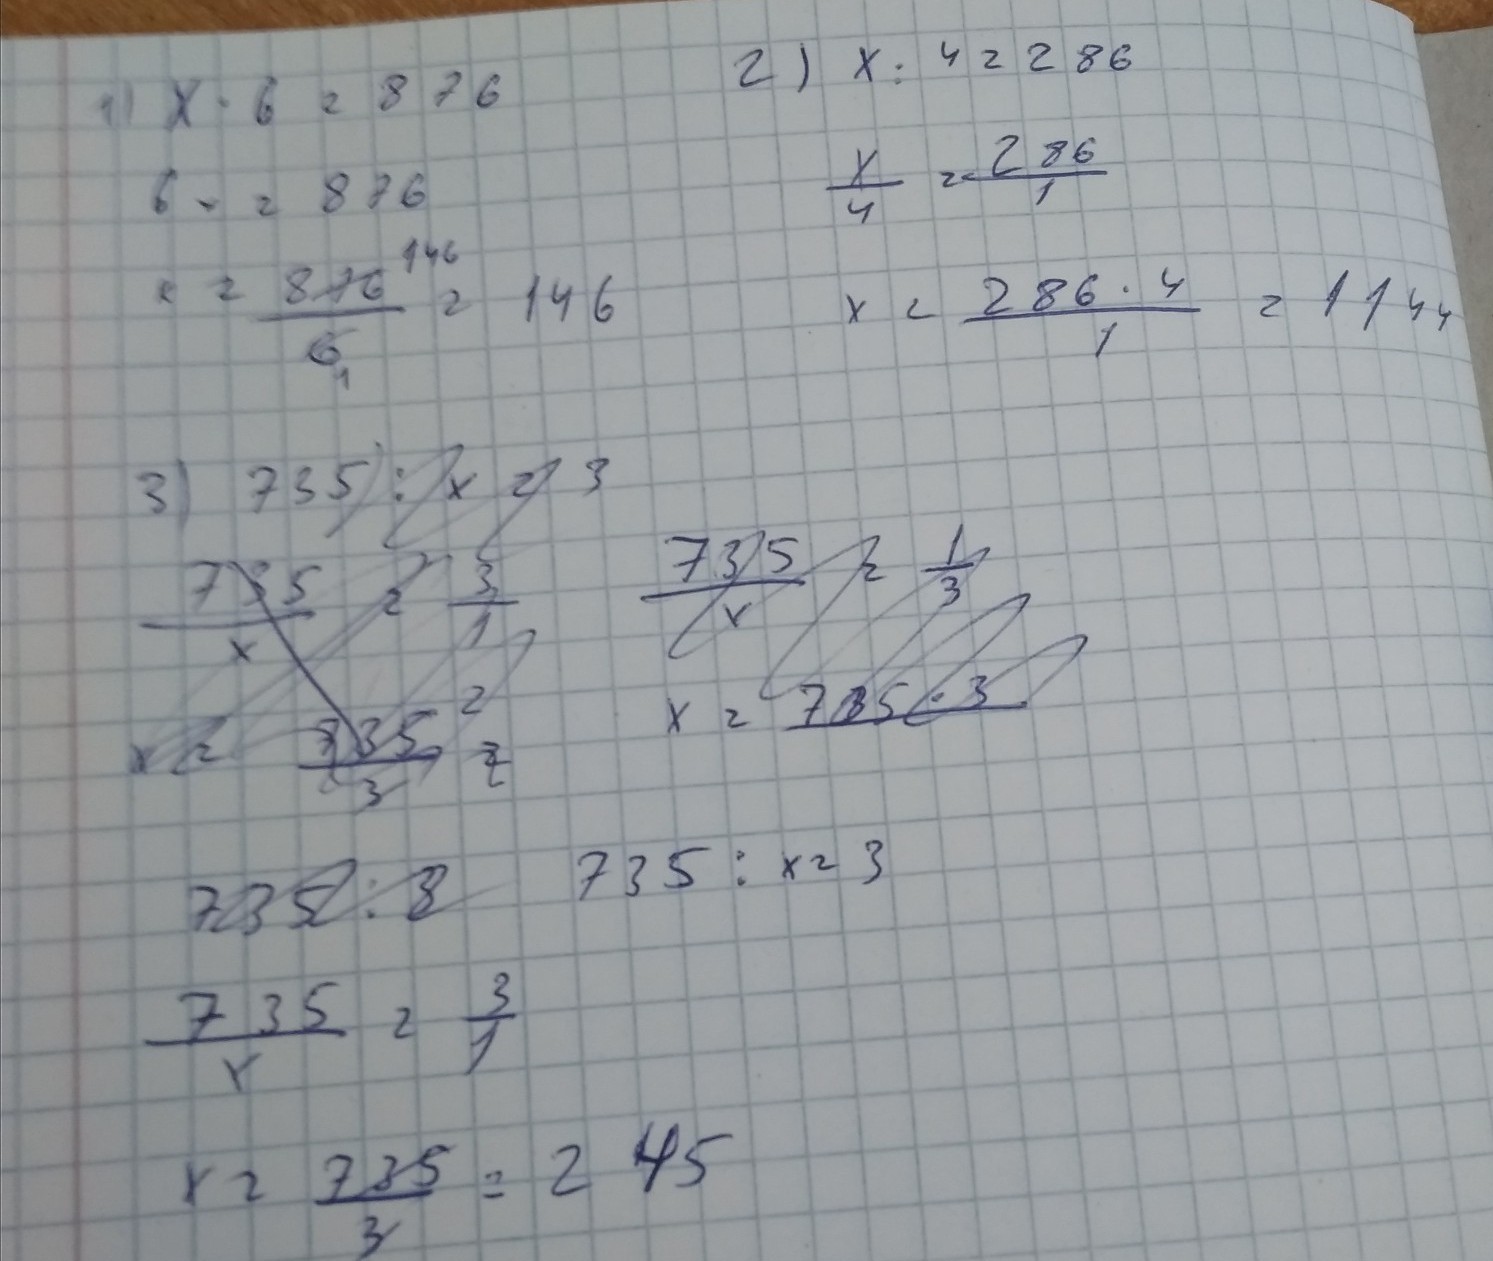 1) x · 6 = 876
6 = 876
x = 876/6 = 146
146
1
2) x : 4 = 286
x/4 = 286/1
x = 286 · 4/1 = 1144
3) 735 : x = 3
735/x = 3/1
x = 735/3 =
735/x = 1/3
x = 735 · 3
735 : 3
735 : x = 3
735/x = 3/1
x = 735/3 = 245